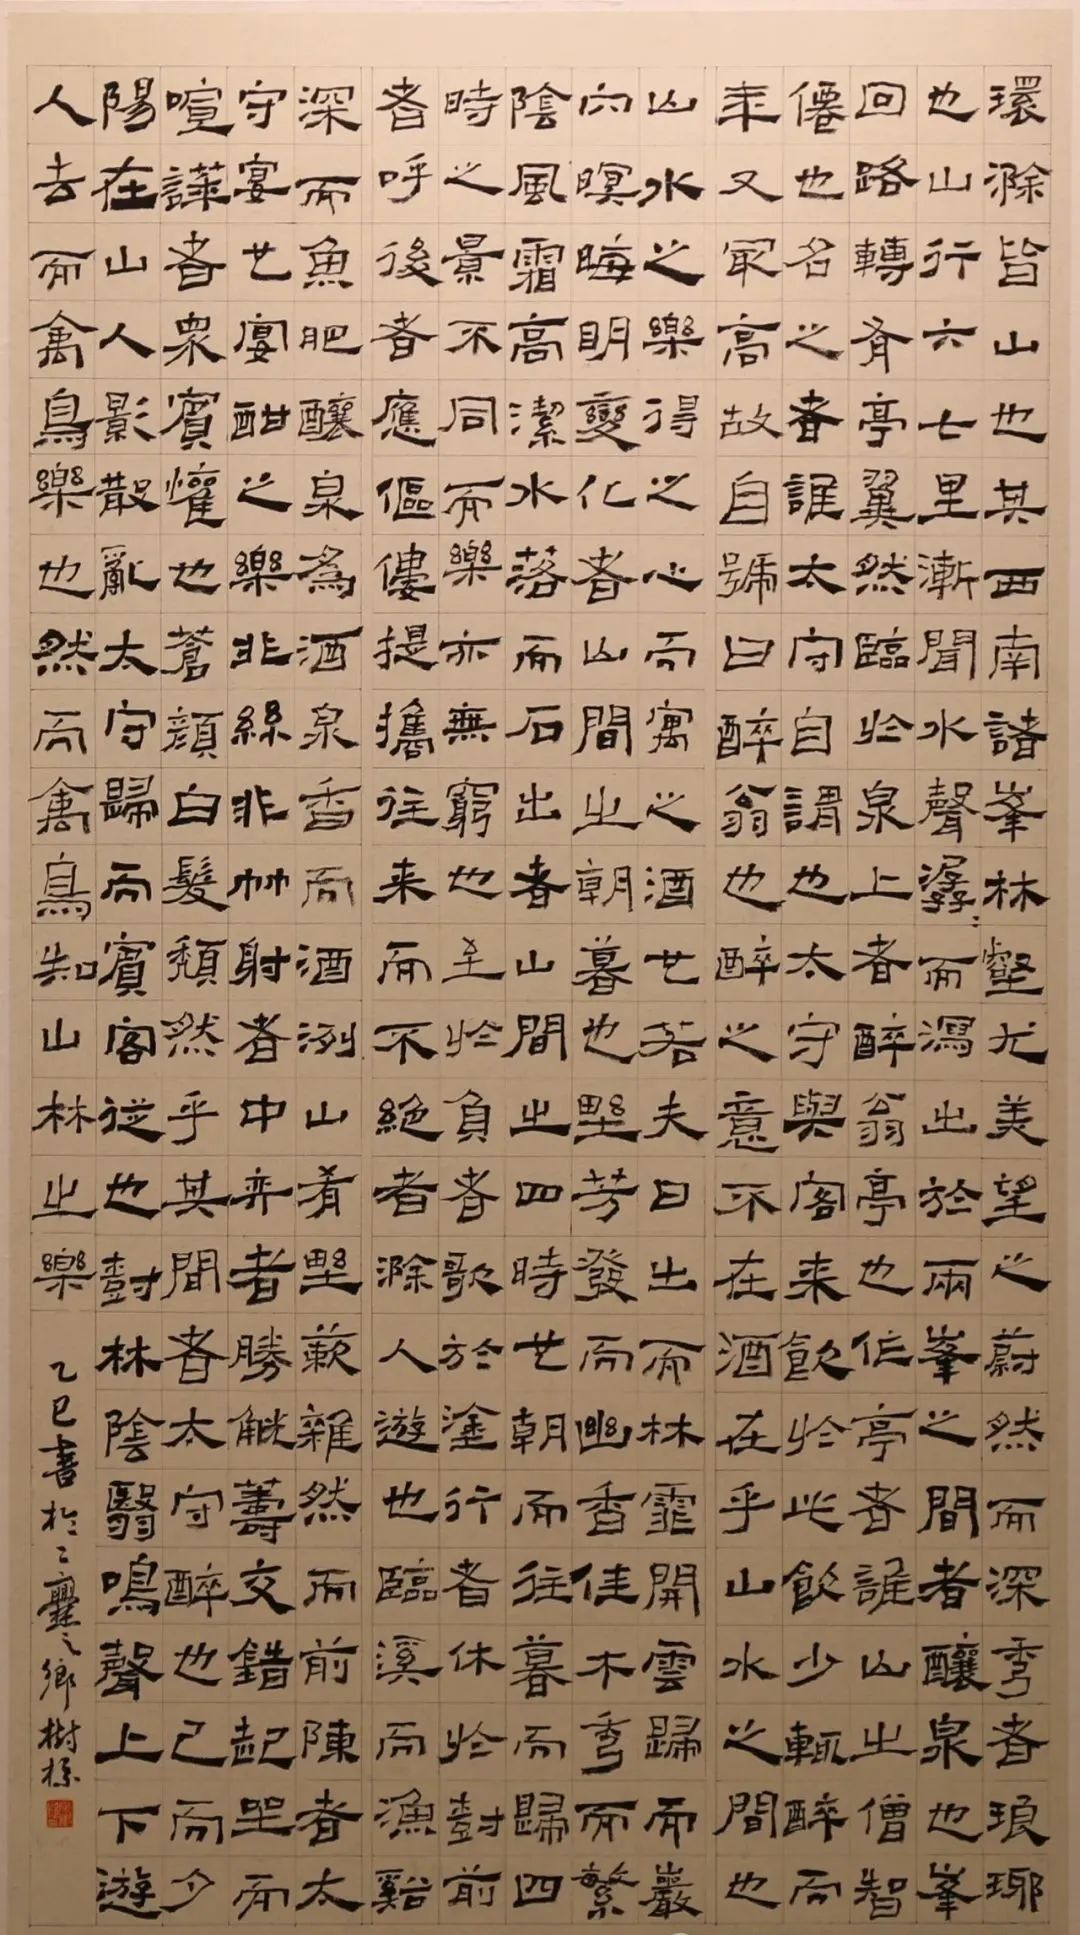 環滁皆山也其西南諸峯林壑尤美望之蔚然而深秀者琅琊
也山行六七里漸聞水聲潺〻而瀉出於兩峯之間者釀泉也峯
回路轉有亭翼然臨於泉上者醉翁亭也作亭者誰山之僧智
僊也名之者誰太守自謂也太守與客来飲於此飲少輒醉而
年又冣高故自號曰醉翁也醉之意不在酒在乎山水之間也
山水之樂得之心而寓之酒也若夫日出而林霏開雲歸而巖
穴暝晦明變化者山間之朝暮也野芳發而幽香佳木秀而繁
陰風霜高潔水落而石出者山間之四時也朝而往暮而歸四
時之景不同而樂亦無窮也至於負者歌於塗行者休於樹前
者呼後者應傴僂提攜往来而不絶者滁人遊也臨溪而漁谿
深而魚肥釀泉為酒泉香而酒洌山肴野蔌雜然而前陳者太
守宴也宴酣之樂非絲非竹射者中弈者勝觥籌交錯起坐而
喧譁者眾賓懽也蒼顔白髮頹然乎其間者太守醉也已而夕
陽在山人影散亂太守歸而賓客從也樹林陰翳鳴聲上下遊
人去而禽鳥樂也然而禽鳥知山林之樂
乙巳書於鄉樹